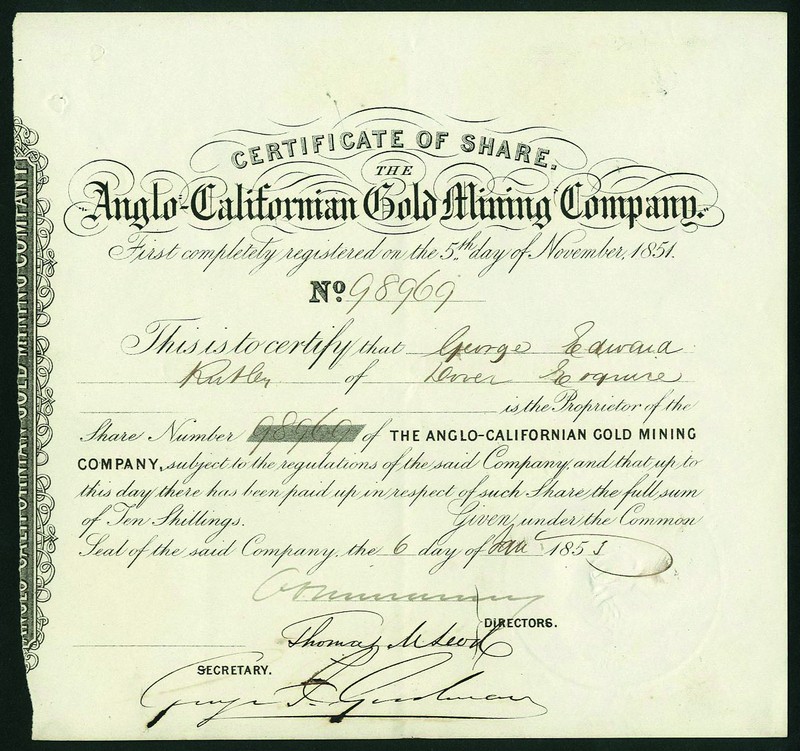 CERTIFICATE OF SHARE.
THE
Anglo-Californian Gold Mining Company.
First completely registered on the 5th day of November, 1851.
No 98969
This is to certify that George Edward
of Dover Esquire
is the Proprietor of the
Share Number 98969 of THE ANGLO-CALIFORNIAN GOLD MINING
COMPANY, subject to the regulations of the said Company, and that up to
this day there has been paid up in respect of such Share the full sum
of Ten Shillings. Given under the Common
Seal of the said Company, the 6 day of Jan 1853
DIRECTORS.
Thomas McLeod
SECRETARY.
George F. Goodman
ANGLO-CALIFORNIAN GOLD MINING COMPANY